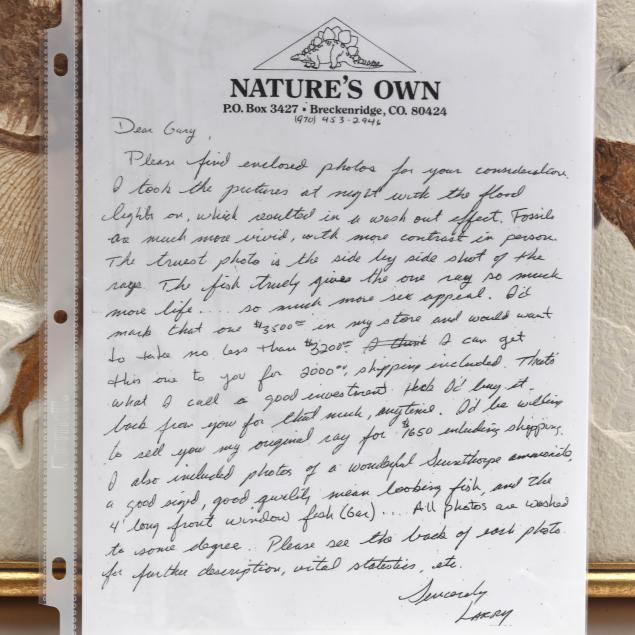 NATURE'S OWN
P.O. Box 3427 • Breckenridge, CO. 80424
(970) 453-2946
Dear Gary,
Please find enclosed photos for your consideration.
I took the pictures at night with the flood
lights on, which resulted in a wash out effect. Fossils
are much more vivid, with more contrast in person.
The truest photo is the side by side shot of the
rays. The fish truly gives the one ray so much
more life.... so much more sex appeal. I'd
mark that one $3500.00 in my store and would want
to take no less than $3200.00. I think I can get
this one to you for 2000.00, shipping included. That's
what I call a good investment. Heck I'd buy it
back from you for that much, anytime. I'd be willing
to sell you my original ray for $1650 including shipping.
I also included photos of a wonderful Scunthorpe ammonite,
a good sized, good quality mean looking fish, and the
4' long front window fish (Gar)... All photos are washed
to some degree. Please see the back of each photo
for further description, vital statistics, etc.
Sincerely
LARRY